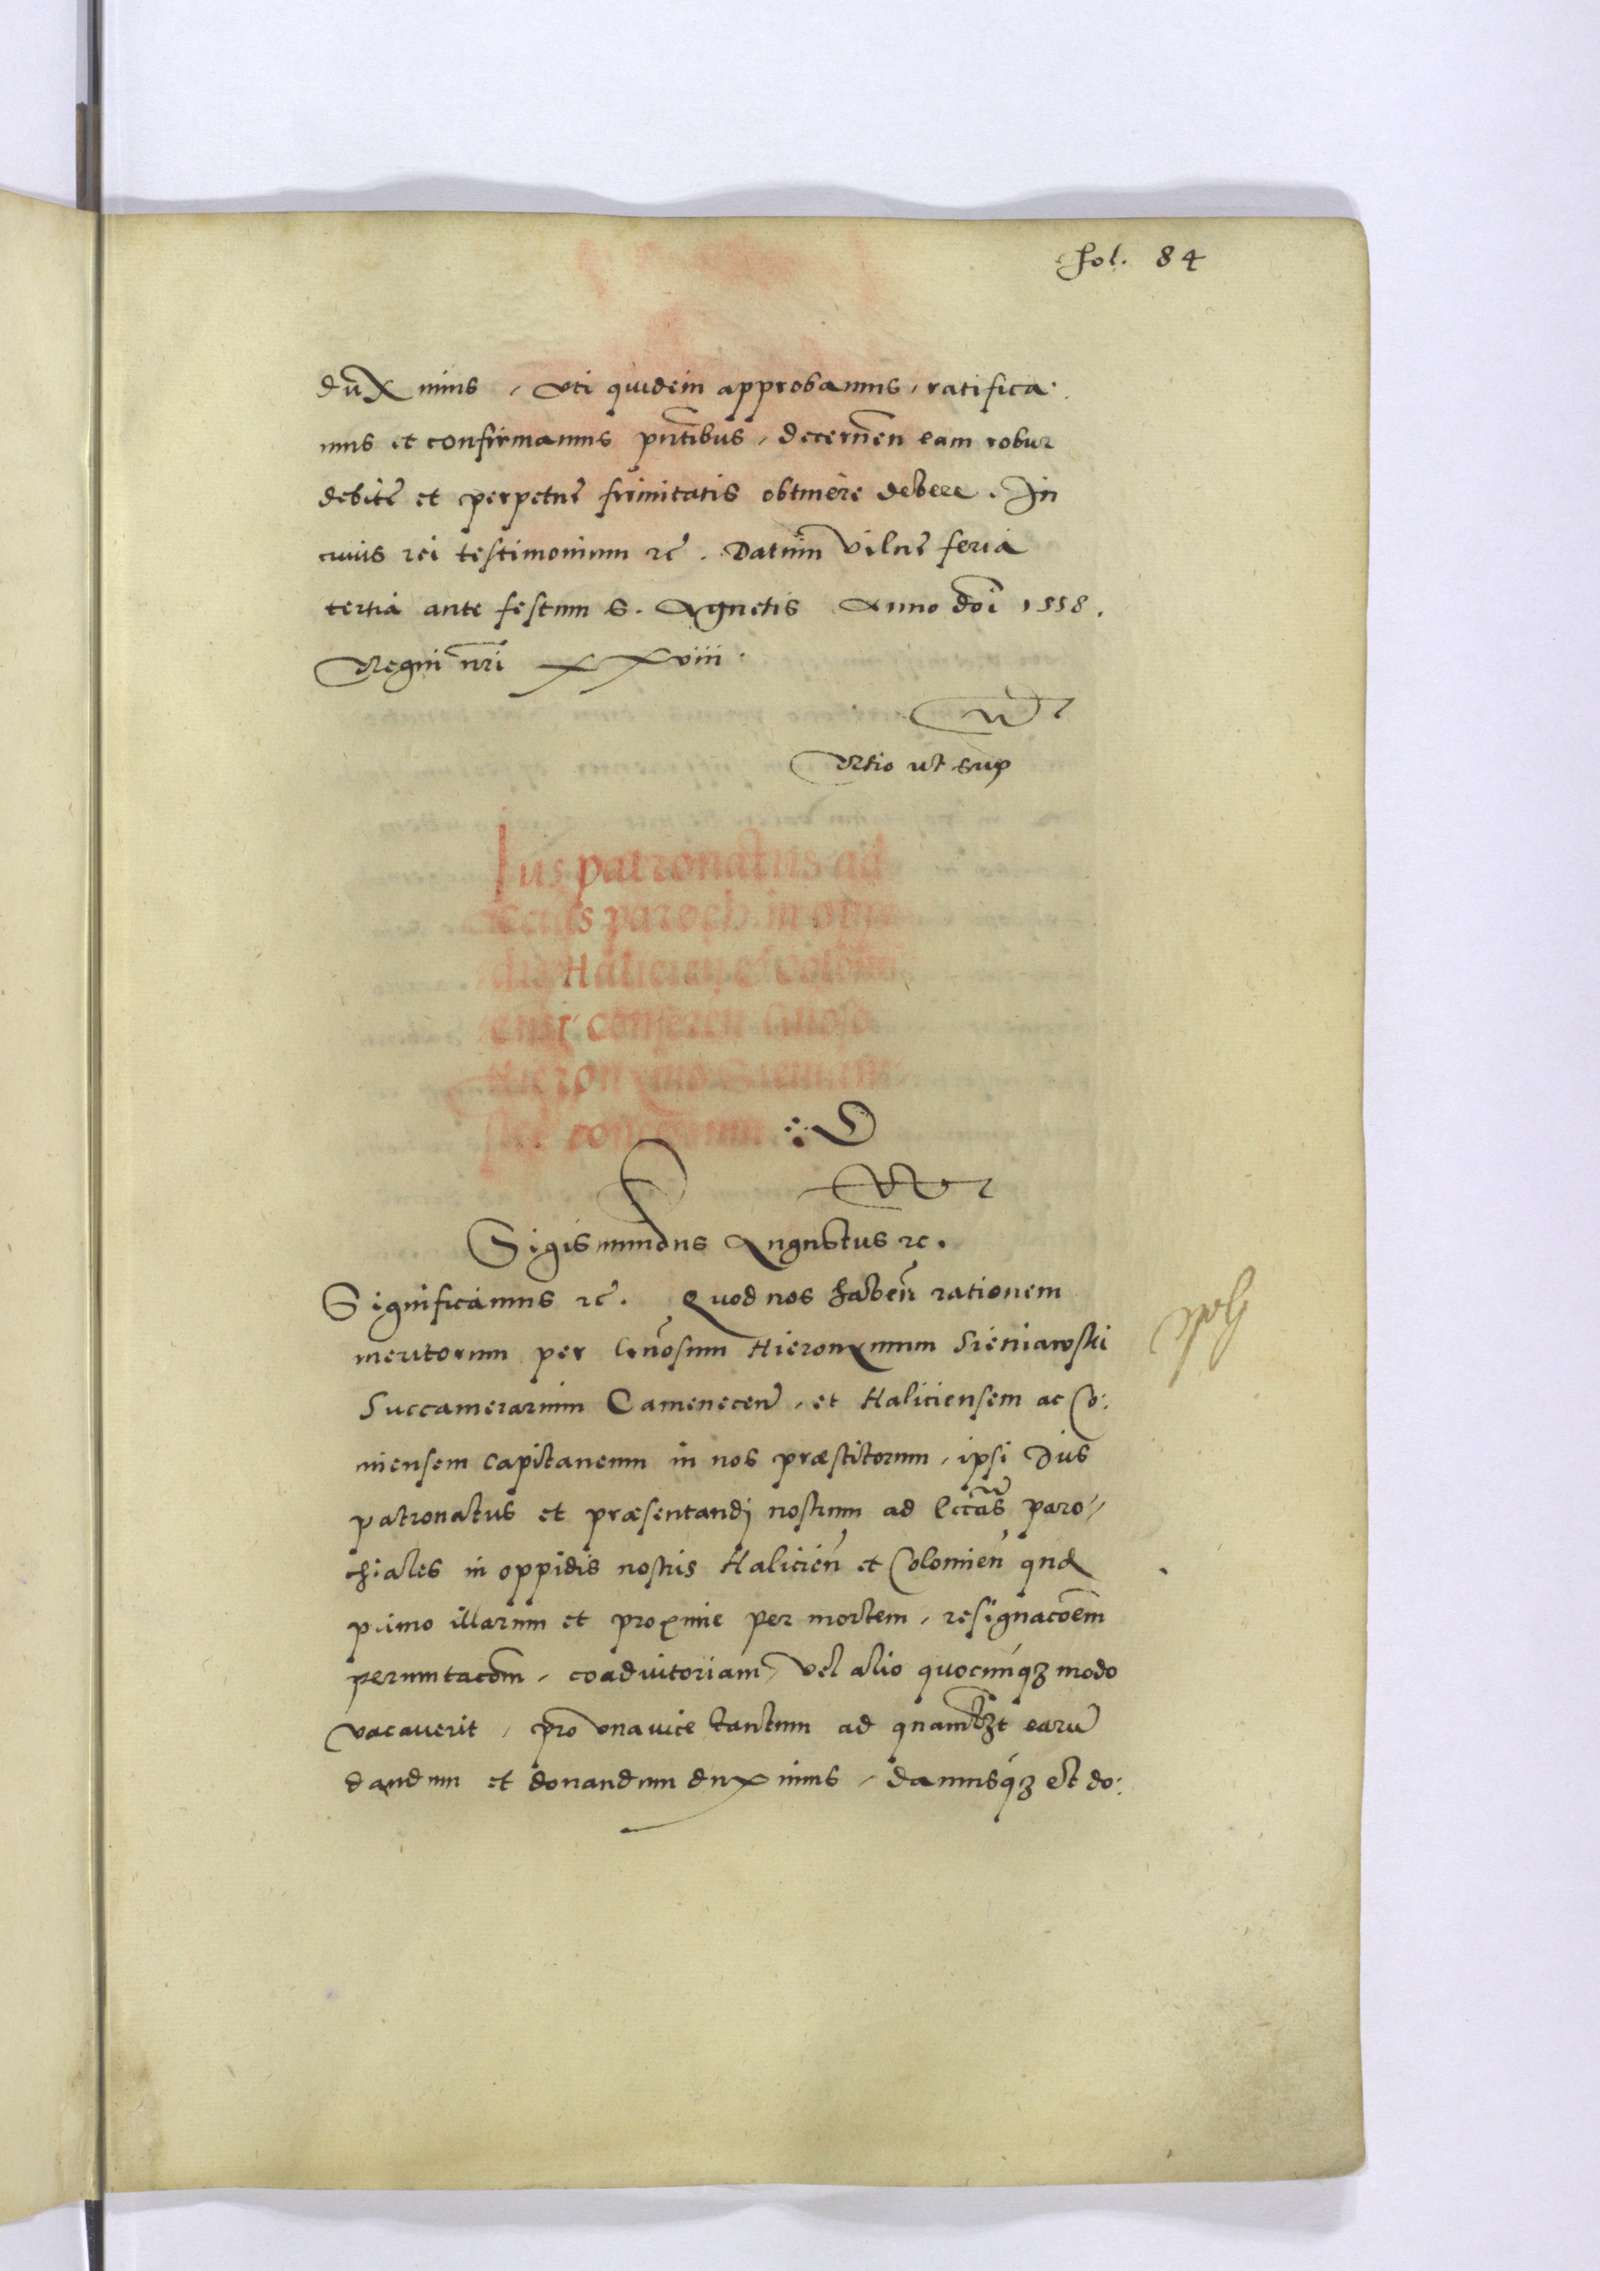 fol. 84
dux̄imus, uti quidem approbamus, ratifica-
mus et confirmamus pñtibus, decerneñ eam robur
debitę et perpetuę firmitatis obtinere debere. In
cuius rei testimonium etc̃. Datum Vilnę feria
tertia ante festum S. Agnetis Anno doī 1558.
Regni ñri xxviii.
Rłtio ut sup
Ius patronatus ad
eccłs paroch. in oppi
dis Halicień et Colomi
ensi conferen G̃noso
Hieronymo Sieniaw
ski concessum
Sigismundus Augustus etc.
Significamus etc̃. Quod nos habeñ rationem
meritorum per G̃nosum Hieronymum Sieniawski
Succamerarium Cameneceñ, et Haliciensem ac Co:
miensem Capitaneum in nos præstitorum, ipsi Ius
patronatus et præsentandi nostrum ad ecc̃as paro-
chiales in oppidis nostris Halicień et Colomień quā
primo illarum et proxime per mortem, resignacōem
permutacōm, coadiutoriam, vel alio quocunq́ʒ modo
vacaverit, pro una vice tantum ad quamłʒt earū
dandum et donandum duximus, damusq́ʒ et do: